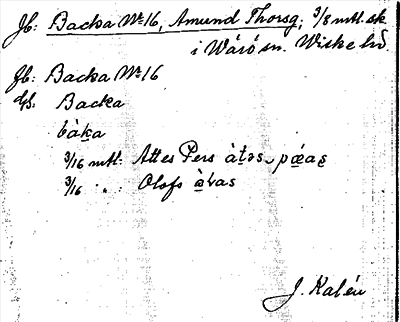 Jb: Backa No 16, Amund Thorsg; 3/8 mtl. sk
i Wärö sn. Wiske hd
Jb: Backa No 16
Backa
bàka
3/16 mtl: Attes Pers
3/16 " . Olofs
J. Kalén